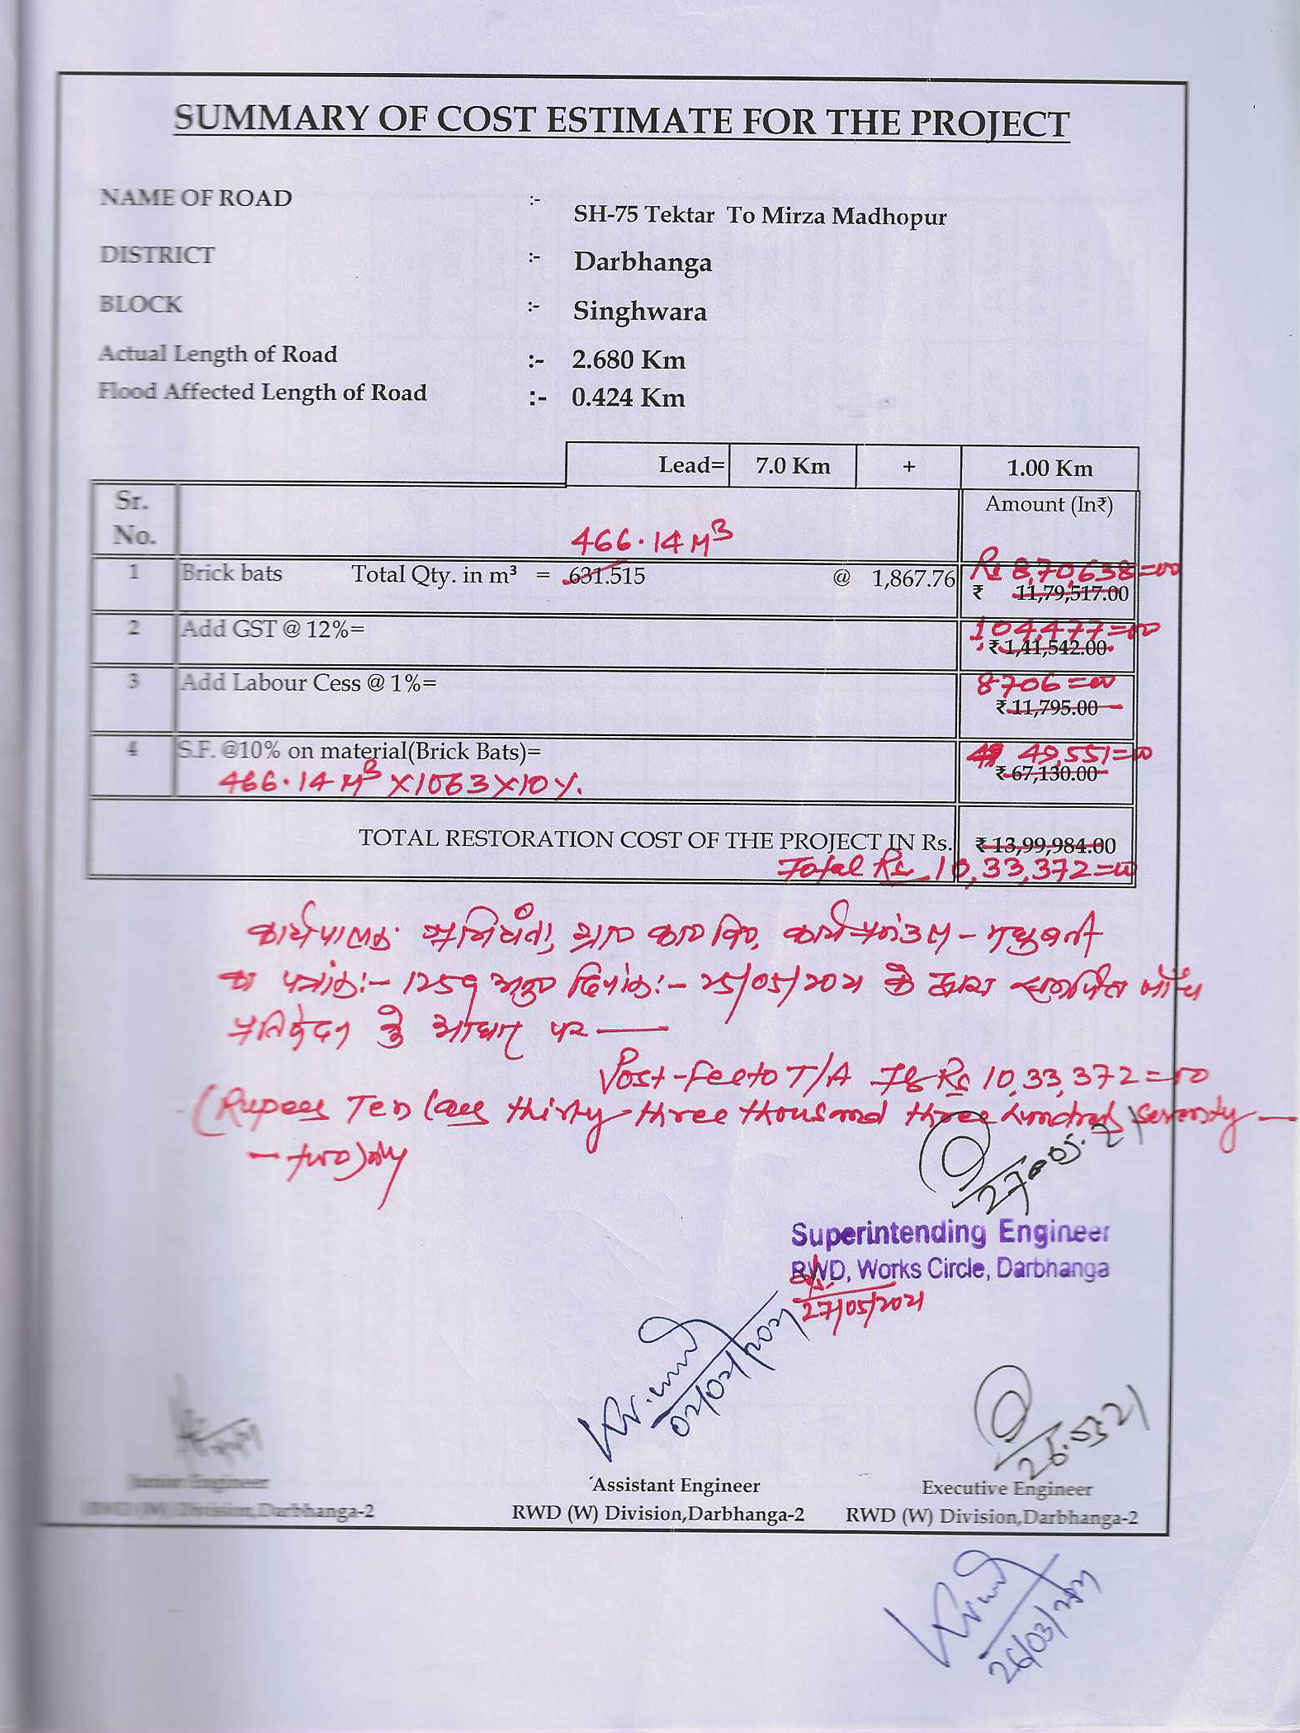 SUMMARY OF COST ESTIMATE FOR THE PROJECT
NAME OF ROAD :- SH-75 Tektar To Mirza Madhopur
DISTRICT :- Darbhanga
BLOCK :- Singhwara
Actual Length of Road :- 2.680 Km
Flood Affected Length of Road :- 0.424 Km
Lead= 7.0 Km + 1.00 Km
Sr. No. Amount (In₹)
466.14 M³
1 Brick bats Total Qty. in m³ = 631.515 @ 1,867.76 Rs 8,70,638=00
₹ 11,79,517.00
2 Add GST @ 12%= 104,477=00
₹ 1,41,542.00
3 Add Labour Cess @ 1%= 8706=00
₹ 11,795.00
4 S.F. @10% on material(Brick Bats)= 49,551=00
466.14 M³ X1063X10%. ₹ 67,130.00
TOTAL RESTORATION COST OF THE PROJECT IN Rs. ₹ 13,99,984.00
Total Rs 10,33,372=00
कार्यपालक अभियंता, ग्रा० का० वि०, कार्य प्रमंडल - मधुबनी
का पत्रांक:- 1259 अनु० दिनांक:- 25/05/2021 के द्वारा समर्पित जाँच
प्रतिवेदन के आधार पर
T/A Rs 10,33,372=00
(Rupees Ten lacs thirty three thousand three hundred seventy
two) only
27.05.21
Superintending Engineer
RWD, Works Circle, Darbhanga
27/05/2021
02/02/2021
26.5.21
Junior Engineer Assistant Engineer Executive Engineer
RWD (W) Division,Darbhanga-2 RWD (W) Division,Darbhanga-2 RWD (W) Division,Darbhanga-2
26/03/2021